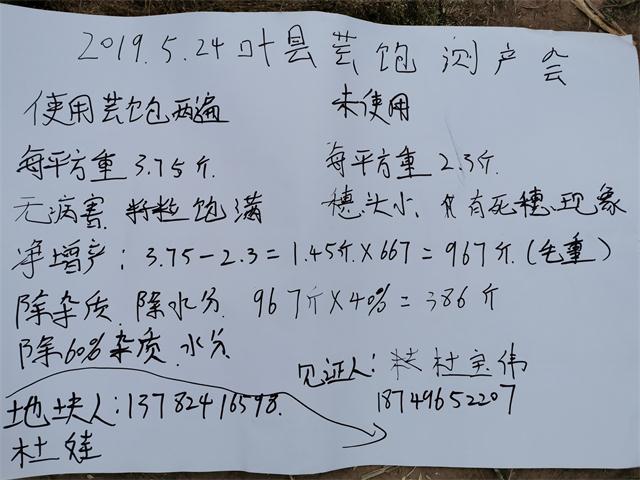 2019.5.24叶县芸饱测产会
使用芸饱两遍
未使用
每平方重 3.75斤.
每平方重 2.3斤.
无病害 籽粒饱满
穗头小、有死穗现象
净增产：3.75-2.3=1.45斤×667=967斤.(毛重)
除杂质.除水分. 967斤×40%=386斤
除60%杂质.水分
见证人：杜宝伟
18749652207
地块人：13782416598.
杜娃